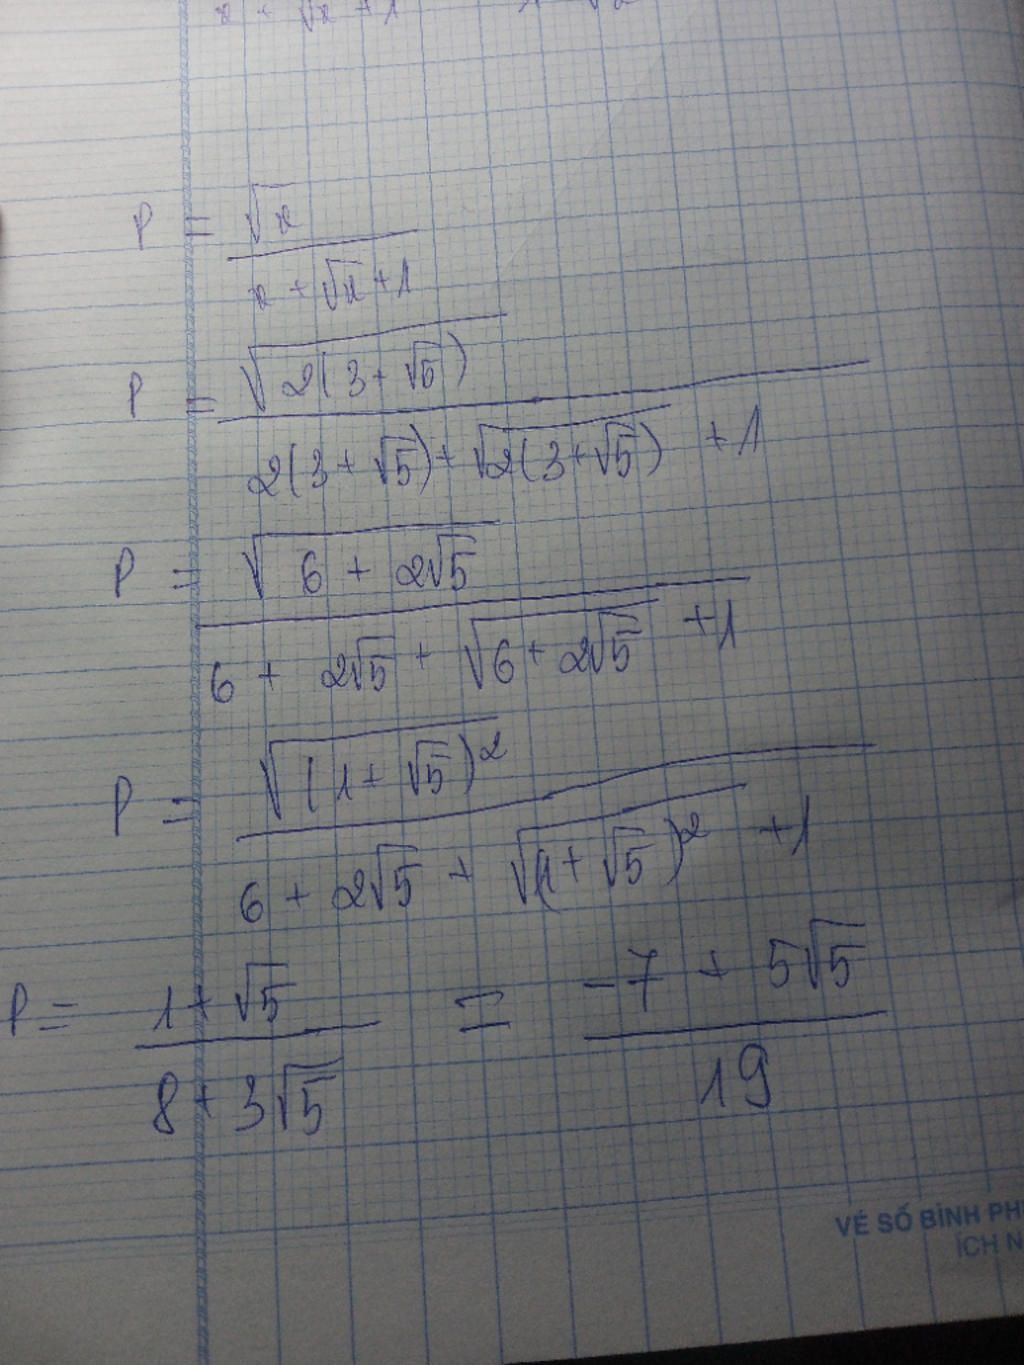 P = √x / (x + √x + 1)
P = √(2(3 + √5)) / (2(3 + √5) + √(2(3 + √5)) + 1)
P = √(6 + 2√5) / (6 + 2√5 + √(6 + 2√5) + 1)
P = √((1 + √5)²) / (6 + 2√5 + √((1 + √5)²) + 1)
P = (1 + √5) / (8 + 3√5) = (-7 + 5√5) / 19
VÉ SỐ BÌNH PH
ÍCH N